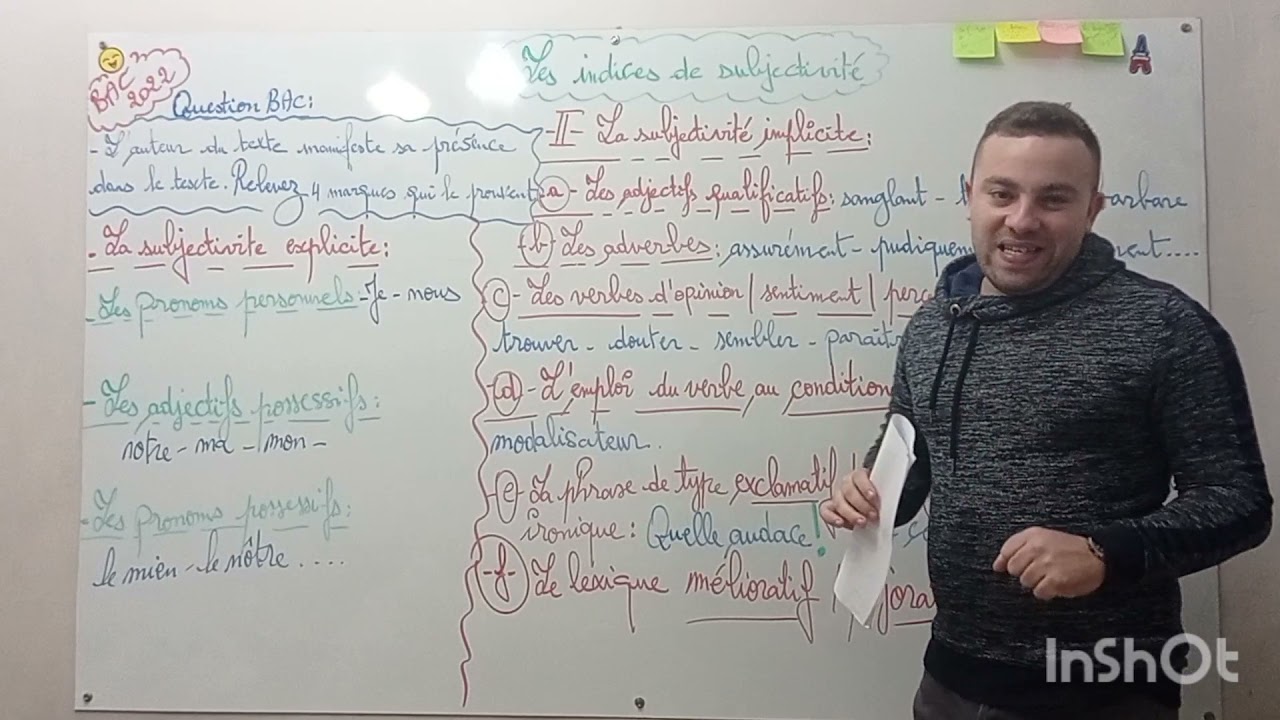 Les indices de subjectivité
BAC
2022
Question BAC:
- L'auteur du texte manifeste sa présence
dans le texte. Relevez 4 marques qui le prouvent.
- La subjectivite explicite:
- Les pronoms personnels - Je - nous
- Les adjectifs possessifs:
notre - ma - mon -
- Les pronoms possessifs:
le mien - le nôtre ....
- II - La subjectivité implicite:
a - Les adjectifs qualificatifs: sanglant -
b - Les adverbes: assurément -
c - Les verbes d'opinion / sentiment /
trouver - douter - sembler -
d - L'emploi du verbe au
modalisateur.
e - La phrase de type
ironique: Quelle audace!
f - Le lexique mélioratif /
InShOt